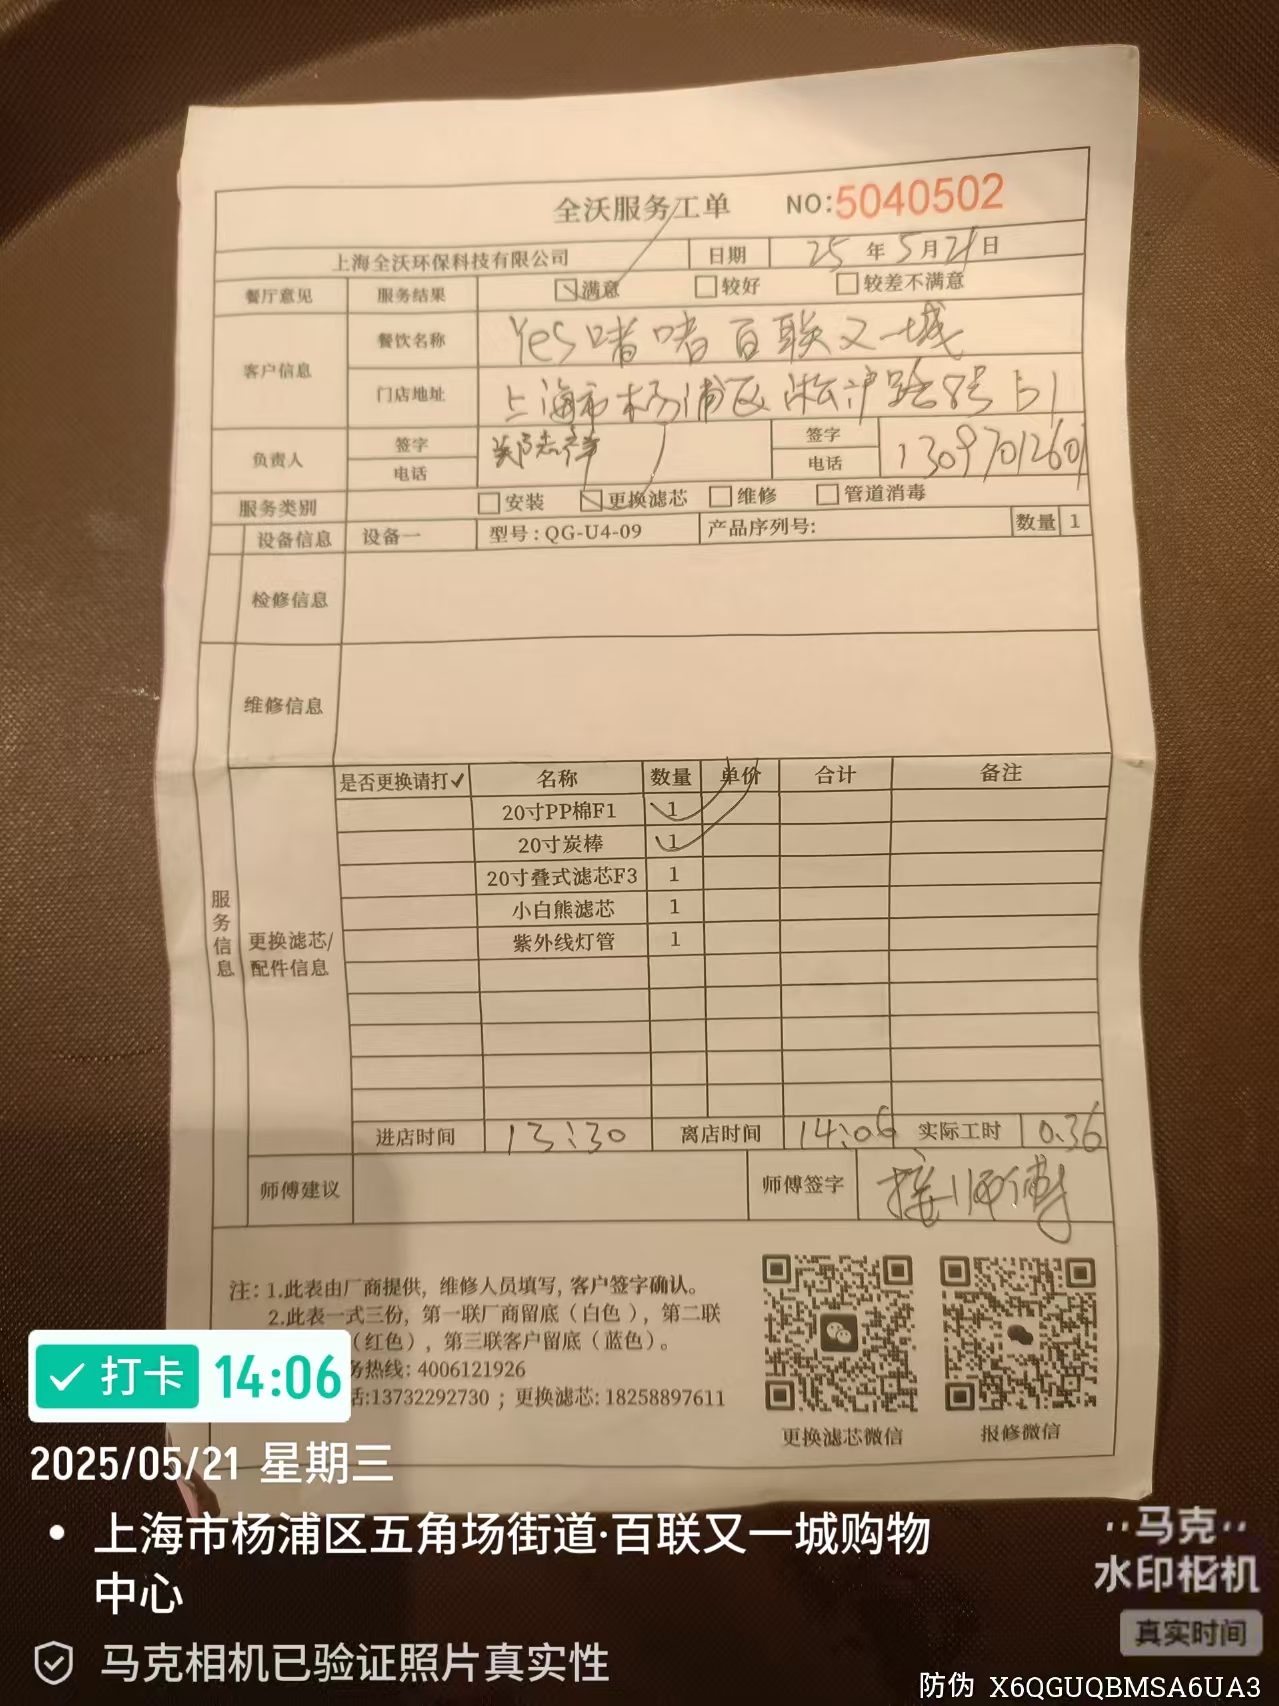 全沃服务工单 NO:5040502
上海全沃环保科技有限公司 日期 25年5月21日
餐厅意见 服务结果 满意 较好 较差不满意
客户信息 餐饮名称 Yes啫啫百联又一城
门店地址 上海市杨浦区淞沪路8号b1
负责人 签字 签字
电话 电话 13097012601
服务类别 安装 更换滤芯 维修 管道消毒
设备信息 设备一 型号:QG-U4-09 产品序列号: 数量 1
检修信息
维修信息
服务信息
更换滤芯/
配件信息
是否更换请打✓ 名称 数量 单价 合计 备注
20寸PP棉F1 1
20寸炭棒 1
20寸叠式滤芯F3 1
小白熊滤芯 1
紫外线灯管 1
进店时间 13:30 离店时间 14:06 实际工时 0.36
师傅建议 师傅签字 师傅
注: 1.此表由厂商提供, 维修人员填写, 客户签字确认。
2.此表一式三份, 第一联厂商留底(白色), 第二联
(红色), 第三联客户留底(蓝色)。
务热线: 4006121926
话:13732292730 ; 更换滤芯: 18258897611
更换滤芯微信 报修微信
打卡 14:06
2025/05/21 星期三
上海市杨浦区五角场街道·百联又一城购物
中心
马克相机已验证照片真实性
马克
水印相机
真实时间
防伪 X6QGUQBMSA6UA3